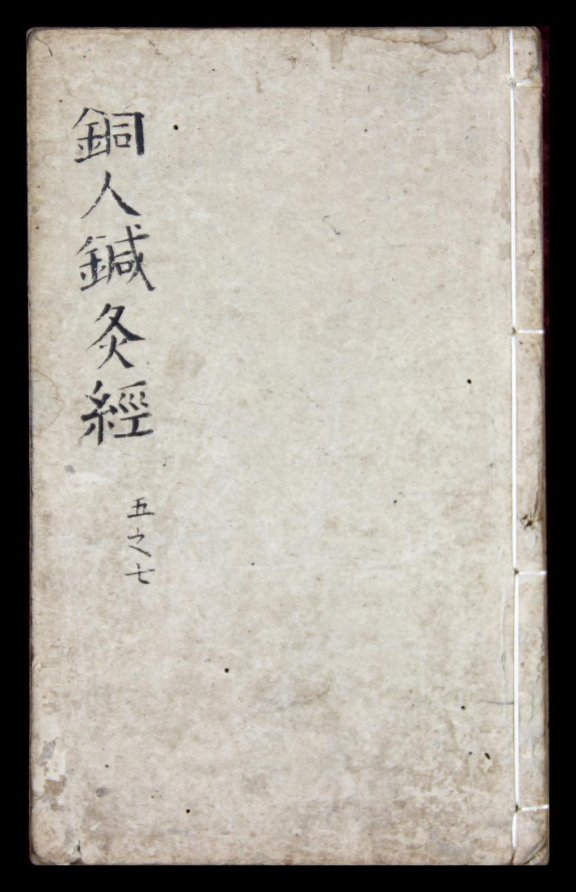 銅人鍼灸經
五之七